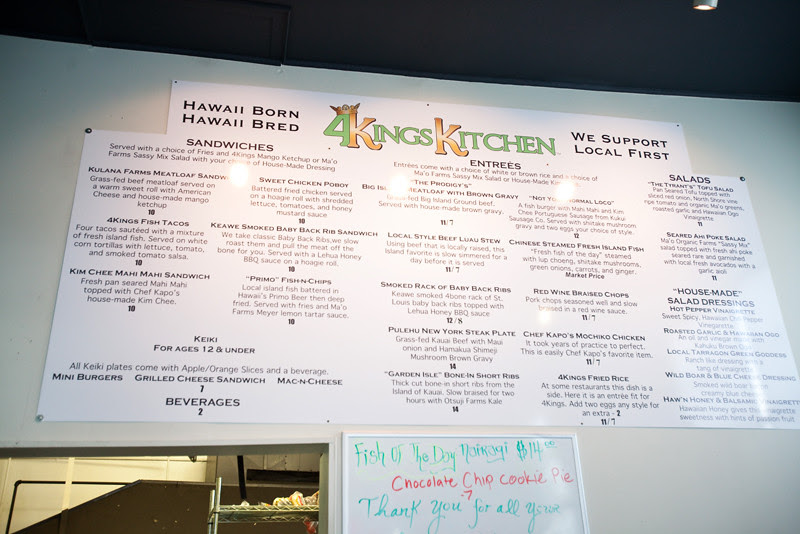 HAWAII BORN
HAWAII BRED
4KINGSKITCHEN
WE SUPPORT
LOCAL FIRST
SANDWICHES
Served with a choice of Fries and 4Kings Mango Ketchup or Ma'o
Farms Sassy Mix Salad with your choice of House-Made Dressing
KULANA FARMS MEATLOAF
Grass-fed beef meatloaf served on
a warm sweet roll with American
Cheese and house-made mango
ketchup
10
4KINGS FISH TACOS
Four tacos sautéed with a mixture
of fresh island fish. Served on white
corn tortillas with lettuce, tomato,
and smoked tomato salsa.
10
KIM CHEE MAHI MAHI SANDWICH
Fresh pan seared Mahi Mahi
topped with Chef Kapo's
house-made Kim Chee.
10
SWEET CHICKEN POBOY
Battered fried chicken served
on a hoagie roll with shredded
lettuce, tomatoes, and honey
mustard sauce
10
KEAWE SMOKED BABY BACK RIB SANDWICH
We take classic Baby Back Ribs, we slow
roast them and pull the meat off the
bone for you. Served with a Lehua Honey
BBQ sauce on a hoagie roll.
10
"PRIMO" FISH-N-CHIPS
Local island fish battered in
Hawaii's Primo Beer then deep
fried. Served with fries and Ma'o
Farms Meyer lemon tartar sauce.
10
KEIKI
FOR AGES 12 & UNDER
All Keiki plates come with Apple/Orange Slices and a beverage.
MINI BURGERS GRILLED CHEESE SANDWICH MAC-N-CHEESE
7
BEVERAGES
2
ENTREÉS
Entrées come with a choice of white or brown rice and a choice of
Ma'o Farms Sassy Mix Salad or House-Made
"THE PRODIGY'S"
BIG MEATLOAF WITH BROWN GRAVY
Grass-fed Big Island Ground beef.
Served with house-made brown gravy.
11/7
LOCAL STYLE BEEF LUAU STEW
Using beef that is locally raised, this
Island favorite is slow simmered for a
day before it is served
11/7
SMOKED RACK OF BABY BACK RIBS
Keawe smoked 4bone rack of St.
Louis baby back ribs topped with
Lehua Honey BBQ sauce
12/8
PULEHU NEW YORK STEAK PLATE
Grass-fed Kauai Beef with Maui
onion and Hamakua Shimeji
Mushroom Brown Gravy
14
"GARDEN ISLE" BONE-IN SHORT RIBS
Thick cut bone-in short ribs from the
Island of Kauai. Slow braised for two
hours with Otsuji Farms Kale
14
"NOT YOUR NORMAL LOCO"
A fish burger with Mahi Mahi and Kim
Chee Portuguese Sausage from Kukui
Sausage Co. Served with shiitake mushroom
gravy and two eggs your choice of style.
12
CHINESE STEAMED FRESH ISLAND FISH
"Fresh fish of the day" steamed
with lup choong, shiitake mushrooms,
green onions, carrots, and ginger.
Market Price
RED WINE BRAISED CHOPS
Pork chops seasoned well and slow
braised in a red wine sauce.
11/7
CHEF KAPO'S MOCHIKO CHICKEN
It took years of practice to perfect.
This is easily Chef Kapo's favorite item.
11/7
4KINGS FRIED RICE
At some restaurants this dish is a
side. Here it is an entrée fit for
4Kings. Add two eggs any style for
an extra - 2
11/7
SALADS
"THE TYRANT'S" TOFU SALAD
Pan Seared Tofu topped with
sliced red onion, North Shore vine
ripe tomato and organic Ma'o greens,
roasted garlic and Hawaiian Ogo
Vinegrette.
11
SEARED AHI POKE SALAD
Ma'o Organic Farms "Sassy Mix"
salad topped with fresh ahi poke
seared rare and garnished
with local fresh avocados with a
garlic aioli
11
"HOUSE-MADE"
SALAD DRESSINGS
HOT PEPPER VINAIGRETTE
Sweet Spicy, Hawaiian Chili Pepper
Vinegarette
ROASTED GARLIC & HAWAIIAN OGO
An oil and vinegar made with
Kahuku Brown Ogo
LOCAL TARRAGON GREEN GODDESS
Ranch like dressing with a
tang of vinaigrette
WILD BOAR & BLUE CHEESE DRESSING
Smoked wild boar
creamy blue
HAW'N HONEY & BALSAMIC VINAIGRETTE
Hawaiian Honey gives this vinaigrette
sweetness with hints of passion fruit
Fish Of The Day Nairagi $14.00
Chocolate Chip Cookie Pie
-7
Thank You for all